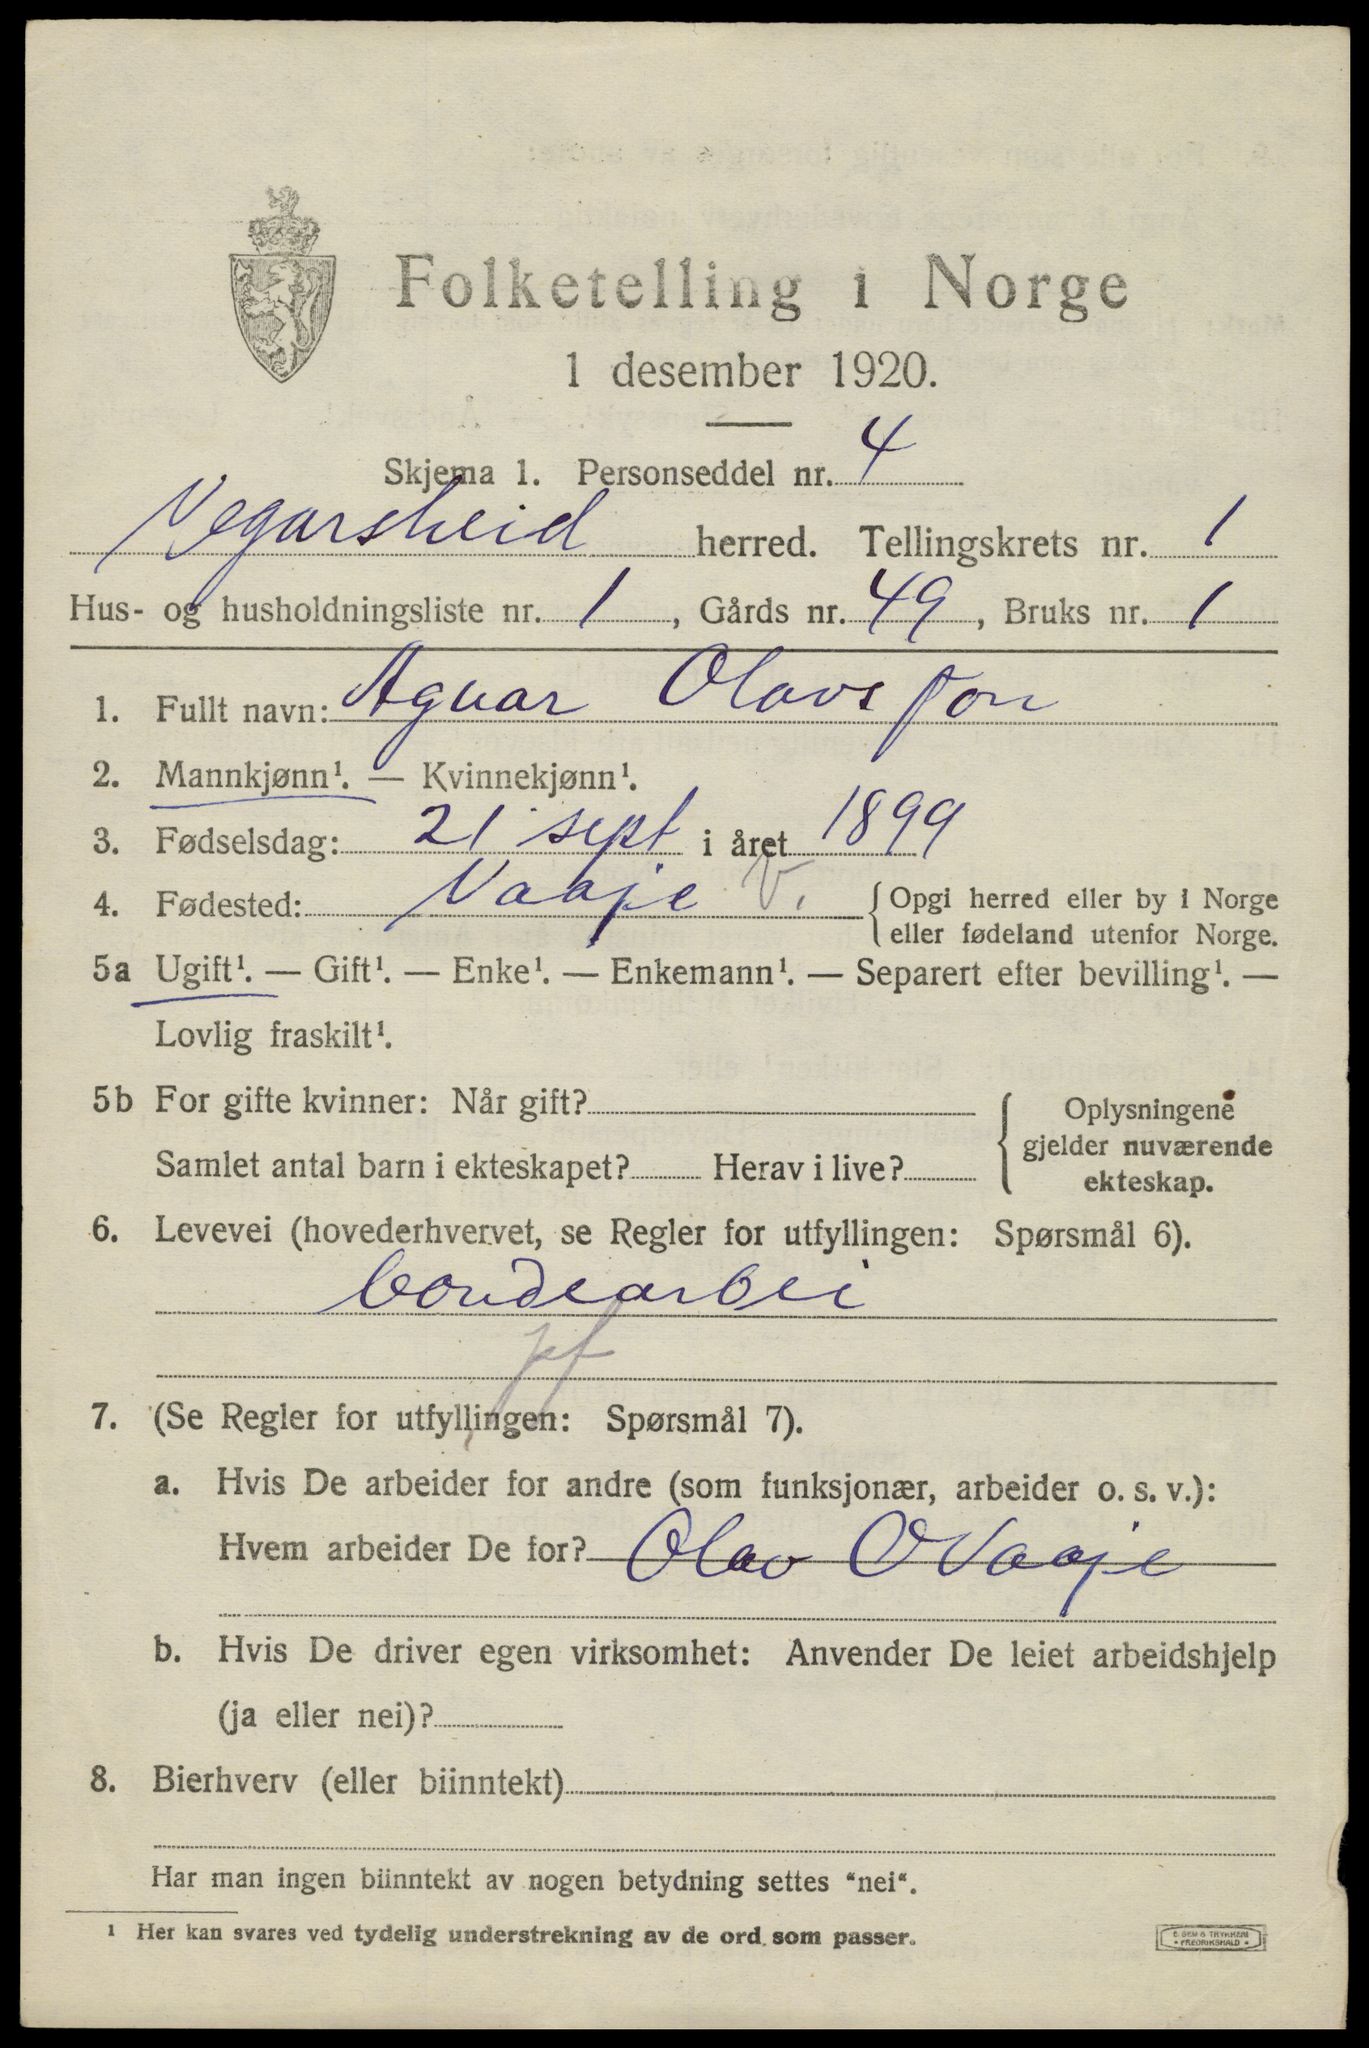 Folketelling i Norge
1 desember 1920.
Skjema 1. Personseddel nr. 4
Vegarsheid herred. Tellingskrets nr. 1
Hus- og husholdningsliste nr. 1, Gårds nr. 49, Bruks nr. 1
1. Fullt navn: Agnar Olavsson
2. Mannkjønn¹. — Kvinnekjønn¹.
3. Fødselsdag: 21 sept i året 1899
4. Fødested: Vaaje V. Opgi herred eller by i Norge
eller fødeland utenfor Norge.
5a Ugift¹. — Gift¹. — Enke¹. — Enkemann¹. — Separert efter bevilling¹. —
Lovlig fraskilt¹.
5b For gifte kvinner: Når gift? Oplysningene
gjelder nuværende
Samlet antal barn i ekteskapet? Herav i live?
ekteskap.
6. Levevei (hovederhvervet, se Regler for utfyllingen: Spørsmål 6).
bondearbei
pf
7. (Se Regler for utfyllingen: Spørsmål 7).
a. Hvis De arbeider for andre (som funksjonær, arbeider o. s. v.):
Hvem arbeider De for? Olav O Vaaje
b. Hvis De driver egen virksomhet: Anvender De leiet arbeidshjelp
(ja eller nei)?
8. Bierhverv (eller biinntekt)
Har man ingen biinntekt av nogen betydning settes "nei".
¹ Her kan svares ved tydelig understrekning av de ord som passer.
E. SEM'S TRYKKERI
FREDRIKSHALD